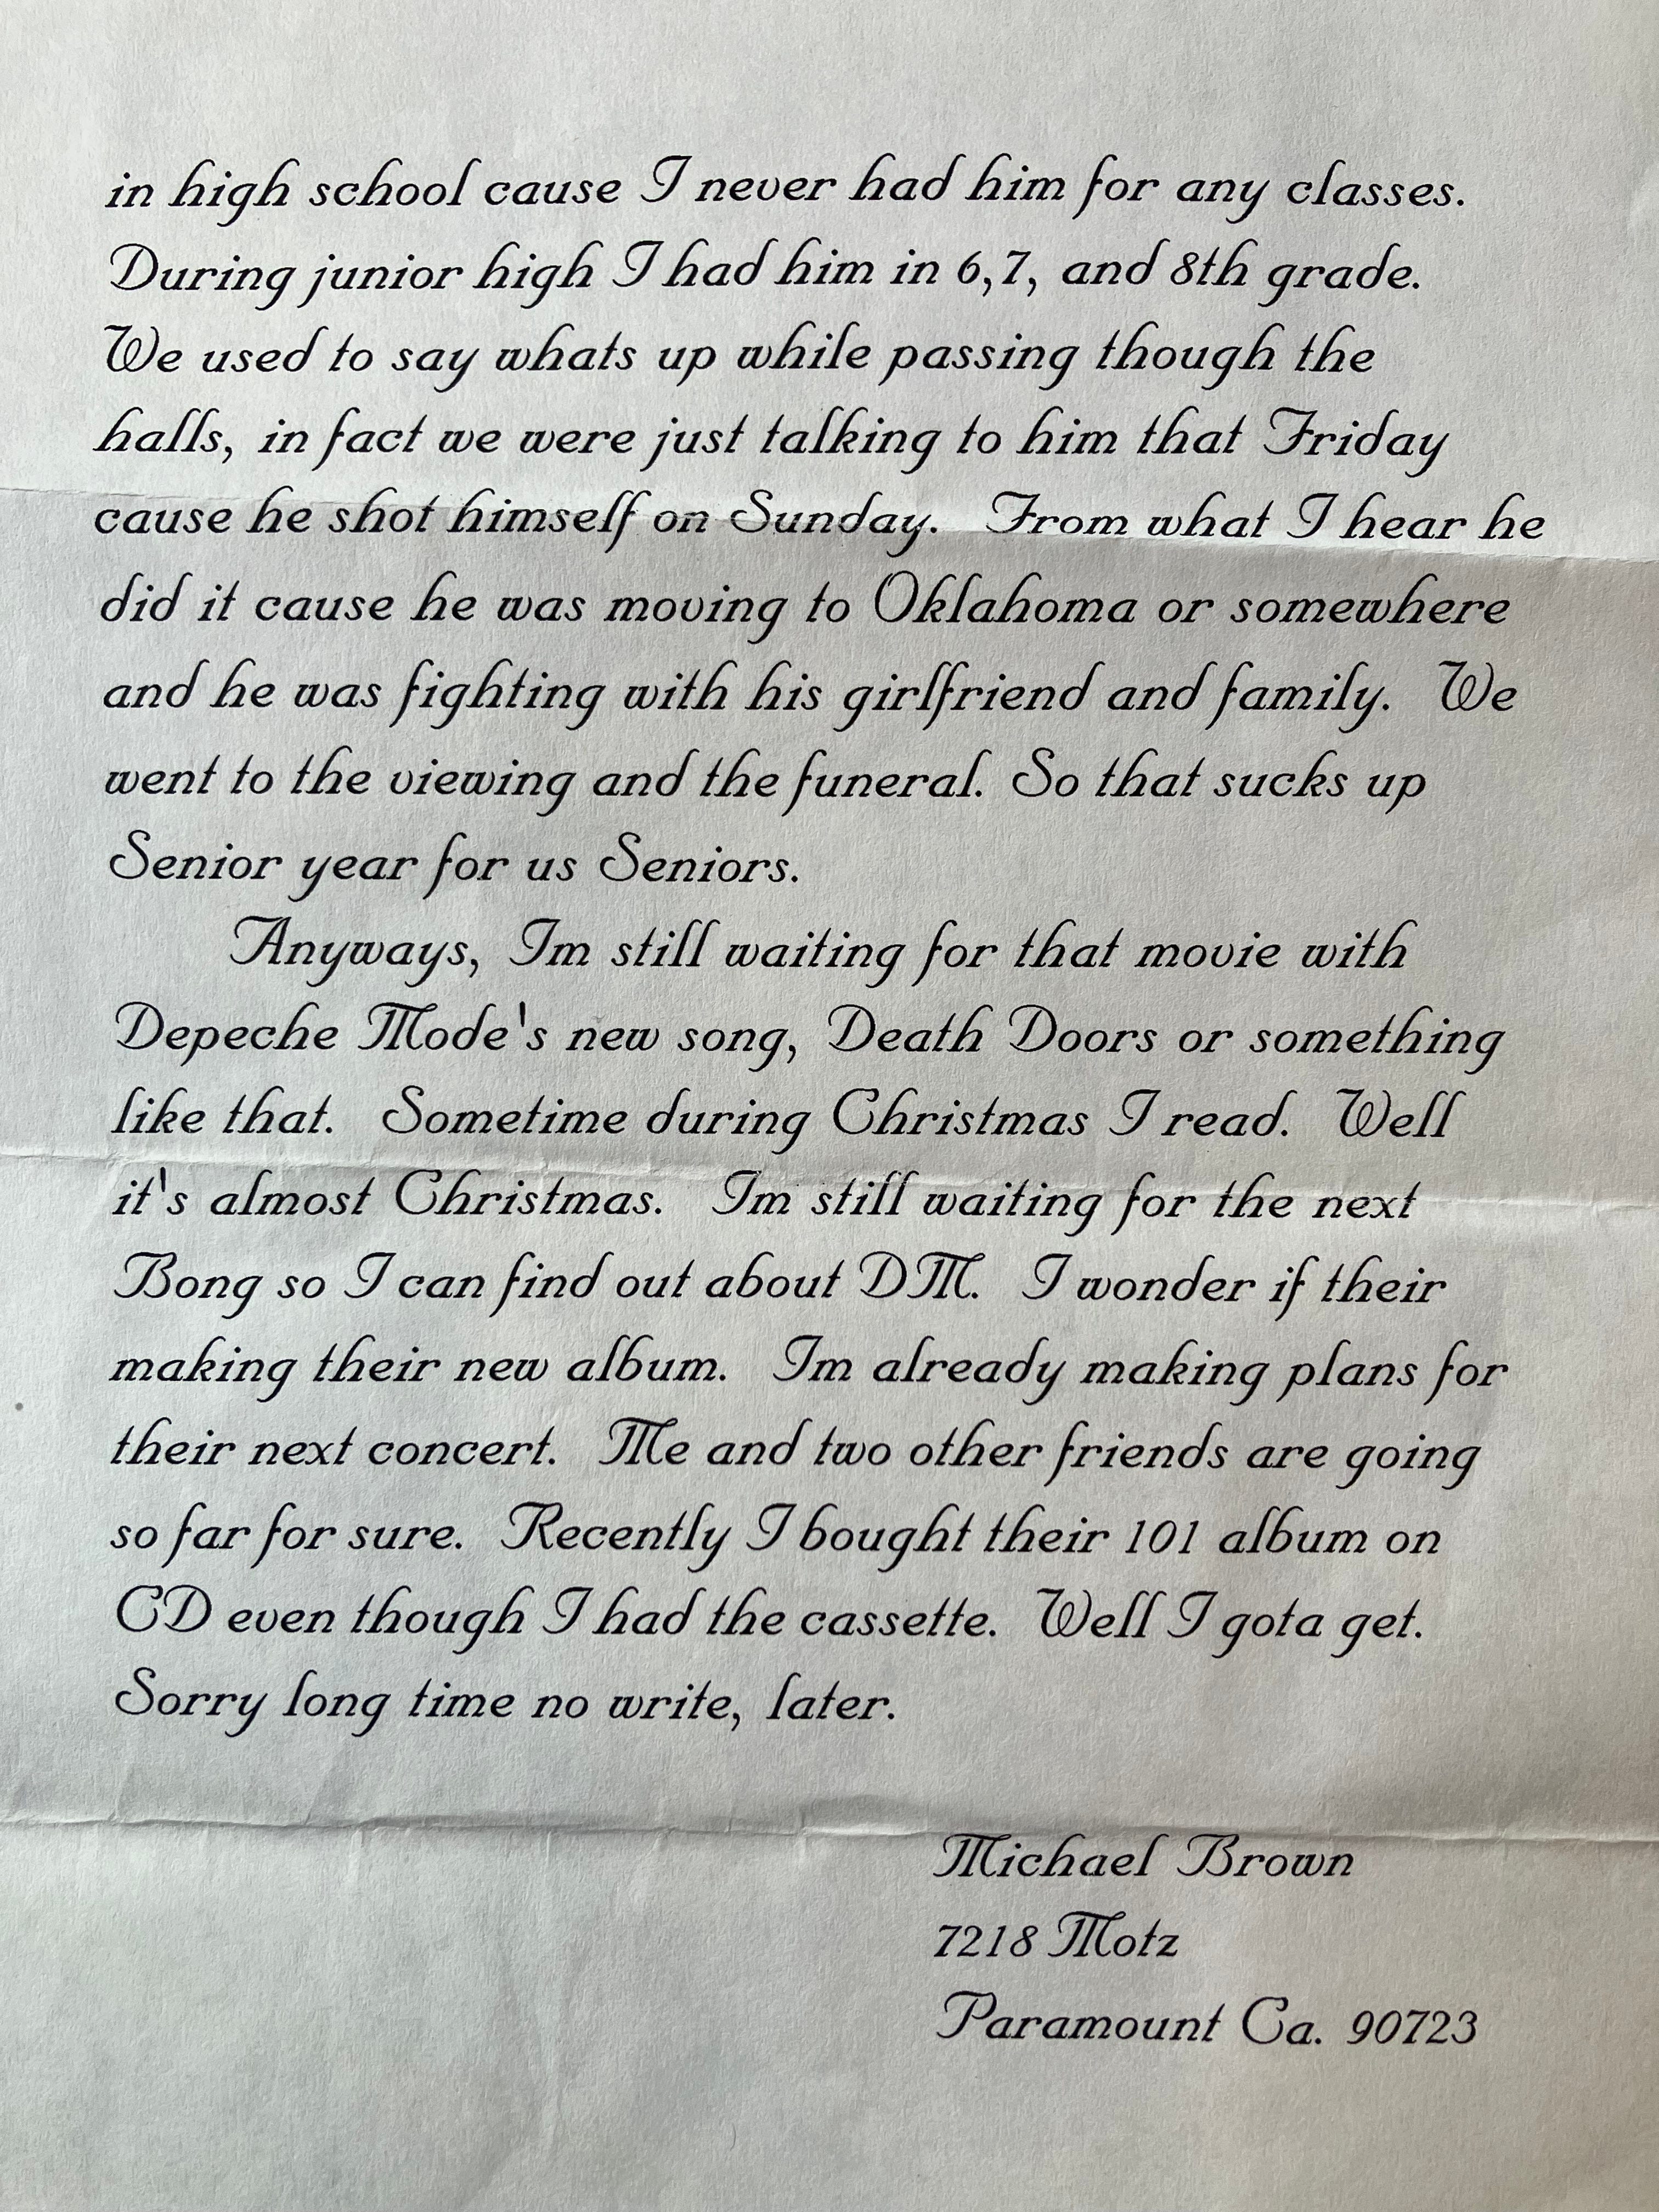 in high school cause I never had him for any classes.
During junior high I had him in 6,7, and 8th grade.
We used to say whats up while passing though the
halls, in fact we were just talking to him that Friday
cause he shot himself on Sunday. From what I hear he
did it cause he was moving to Oklahoma or somewhere
and he was fighting with his girlfriend and family. We
went to the viewing and the funeral. So that sucks up
Senior year for us Seniors.
Anyways, Im still waiting for that movie with
Depeche Mode's new song, Death Doors or something
like that. Sometime during Christmas I read. Well
it's almost Christmas. Im still waiting for the next
Bong so I can find out about DM. I wonder if their
making their new album. Im already making plans for
their next concert. Me and two other friends are going
so far for sure. Recently I bought their 101 album on
CD even though I had the cassette. Well I gota get.
Sorry long time no write, later.
Michael Brown
7218 Motz
Paramount Ca. 90723